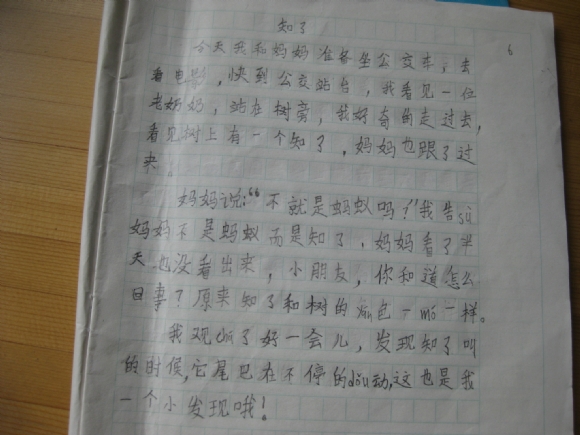 知了
今天我和妈妈准备坐公交车，去
看电影，快到公交站台，我看见一位
老奶奶，站在树旁，我好奇的走过去，
看见树上有一个知了，妈妈也跟了过
来。
妈妈说：“不就是蚂蚁吗？”我告sù
妈妈不是蚂蚁而是知了，妈妈看了半
天也没看出来，小朋友，你和道怎么
回事？原来知了和树的yán色一mó一样。
我观chá了好一会儿，发现知了叫
的时候，它尾巴在不停的dǒu动，这也是我
一个小发现哦！